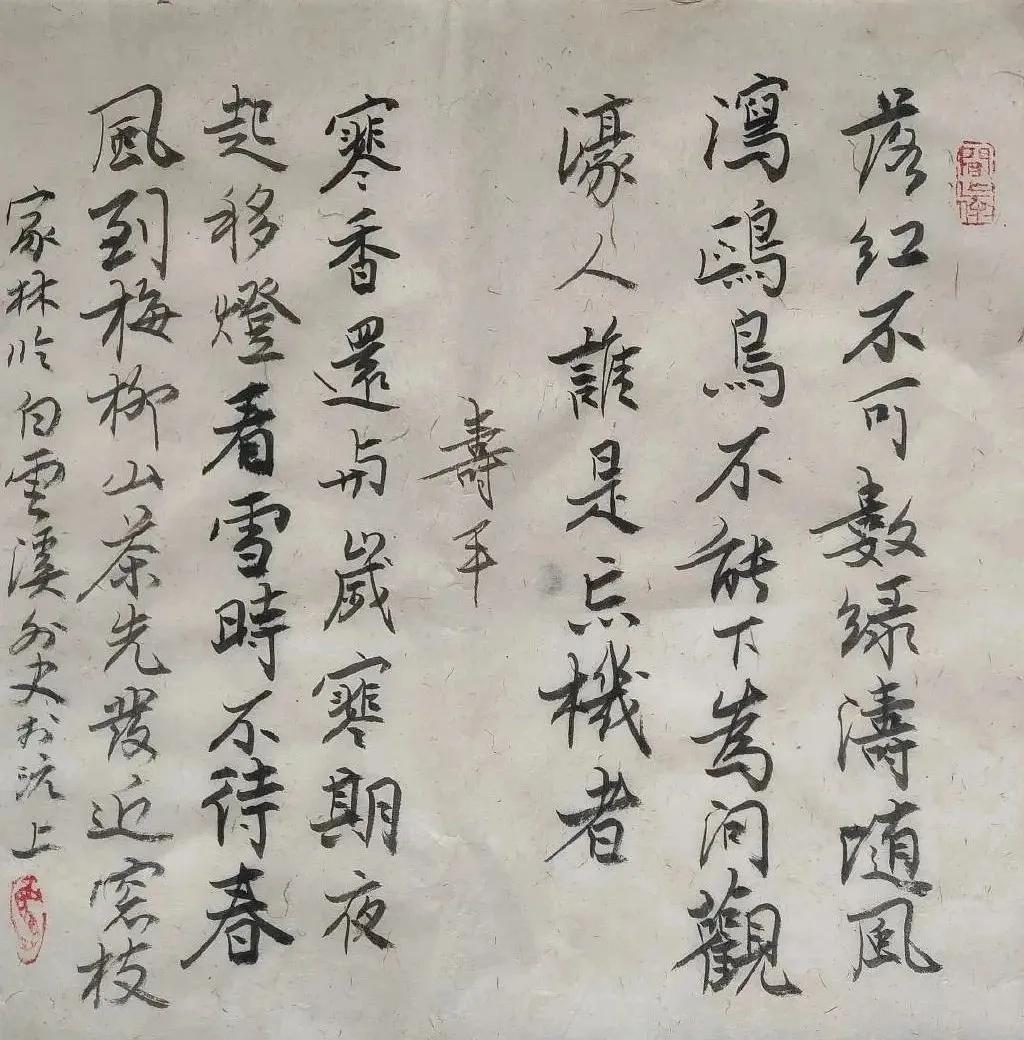 落紅不可數綠濤隨風
瀉鷗鳥不能下為問觀
濠人誰是忘機者
壽平
寒香還與歲寒期夜
起移燈看雪時不待春
風到梅柳山茶先發近窓枝
家林吟白雲溪外史於滬上